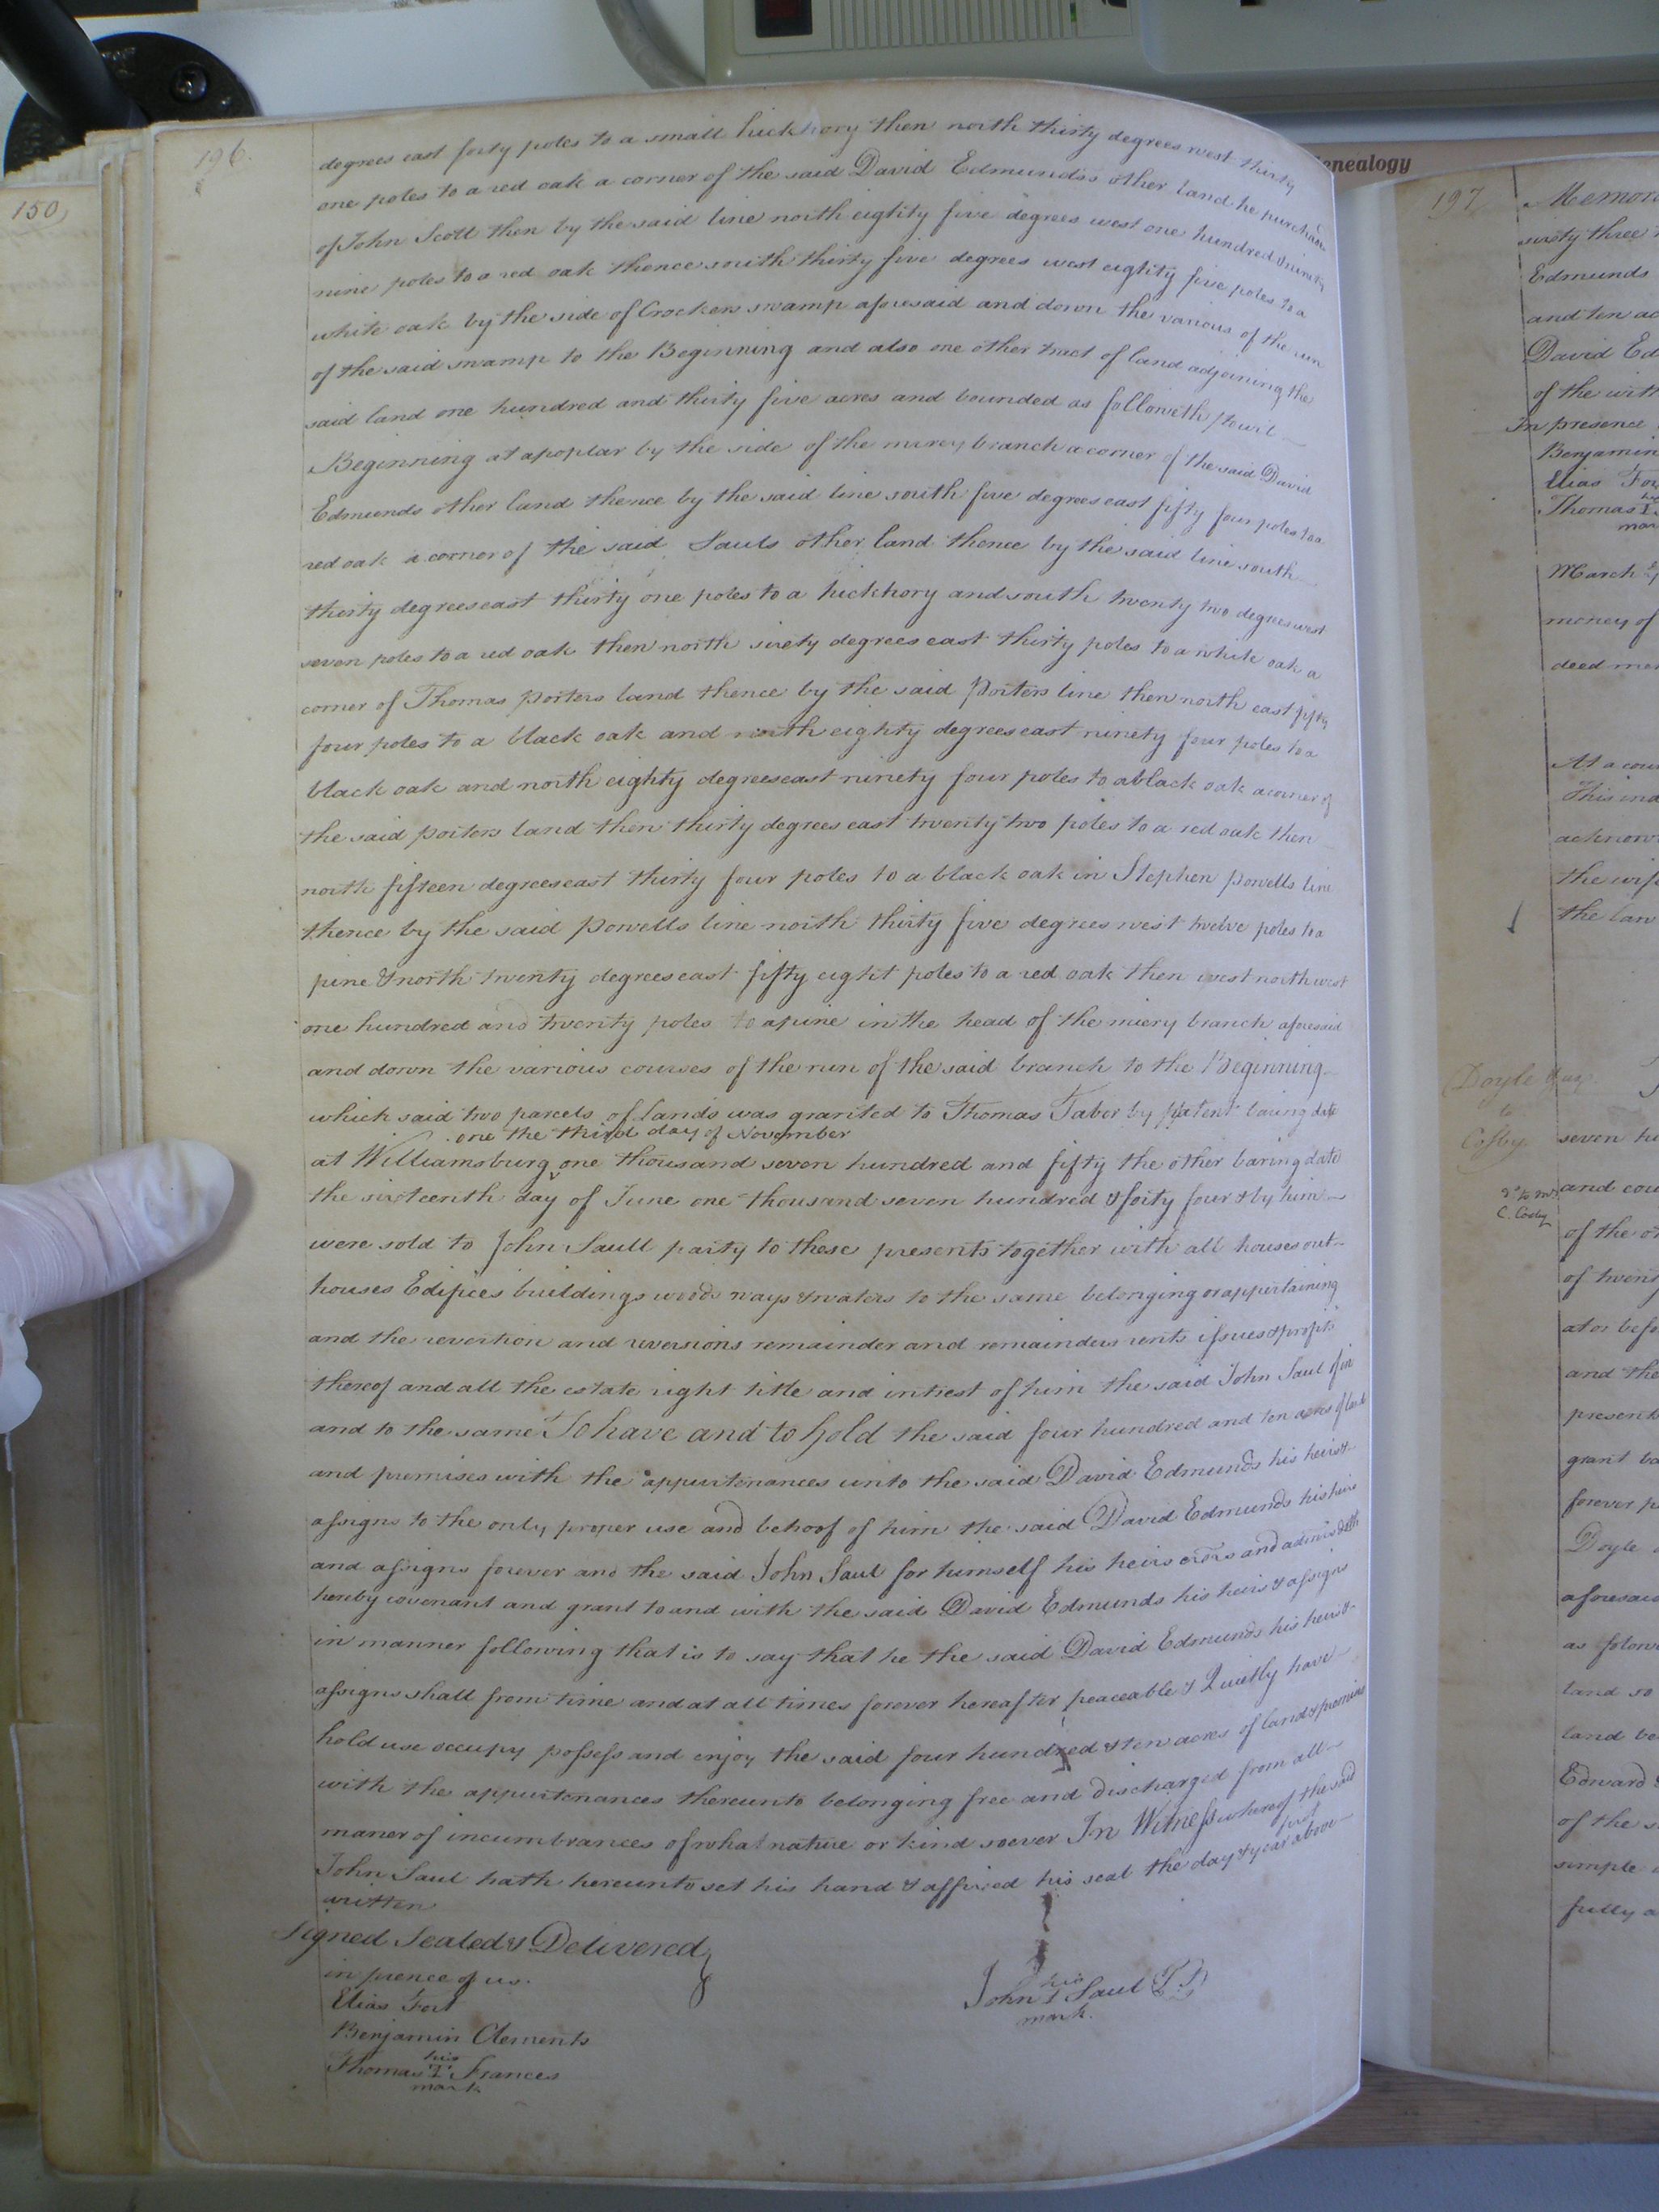 196.
degrees east forty poles to a small hickhory then north thirty degrees west thirty
one poles to a red oak a corner of the said David Edmundss other land he purchas
of John Scott then by the said line north eighty five degrees west one hundred & ninety
nine poles to a red oak thence south thirty five degrees west eighty five poles to a
white oak by the side of Crockers swamp aforesaid and down the various of the run
of the said swamp to the Beginning and also one other tract of land adjoining the
said land one hundred and thirty five acres and bounded as followeth towit
Beginning at a poplar by the side of the mirey branch a corner of the said David
Edmunds other land thence by the said line south five degrees east fifty four poles to a
red oak a corner of the said Sauls other land thence by the said line south
thirty degrees east thirty one poles to a hickhory and south twenty two degrees west
seven poles to a red oak then north sixty degrees east thirty poles to a white oak a
corner of Thomas Porters land thence by the said Porters line then north east fifty
four poles to a black oak and north eighty degrees east ninety four poles to a
black oak and north eighty degrees east ninety four poles to a black oak a corner of
the said porters land then thirty degrees east twenty two poles to a red oak then
north fifteen degrees east thirty four poles to a black oak in Stephen Powells line
thence by the said Powells line north thirty five degrees west twelve poles to a
pine & north twenty degrees east fifty eight poles to a red oak then west north west
one hundred and twenty poles to a pine in the head of the miery branch aforesaid
and down the various courses of the run of the said branch to the Beginning
which said two parcels of lands was granted to Thomas Taber by patent baring date
one the third day of November
at Williamsburg one thousand seven hundred and fifty the other baring date
the sixteenth day of June one thousand seven hundred & forty four & by him
were sold to John Saull party to these presents together with all houses out-
houses Edifices buildings woods ways & waters to the same belonging or appertaining
and the revertion and reversions remainder and remainders rents issues & profits
thereof and all the estate right title and intrest of him the said John Saul of in
and to the same To have and to hold the said four hundred and ten acres of land
and premises with the appurtenances unto the said David Edmunds his heirs &
assigns to the only proper use and behoof of him the said David Edmunds his heirs
and assigns forever and the said John Saul for himself his heirs exors and admrs doth
hereby covenant and grant to and with the said David Edmunds his heirs & assigns
in manner following that is to say that he the said David Edmunds his heirs &
assigns shall from time and at all times forever hereafter peaceable & Quietly have
hold use occupy possess and enjoy the said four hundred & ten acres of land & premises
with the appurtenances thereunto belonging free and discharged from all
maner of incumbrances of what nature or kind soever In Witness whereof the said
John Saul hath hereunto set his hand & affixed his seal the day & year first above
written
Signed Sealed & Delivered
in prence of us.
Elias Fort
Benjamin Clements
his
Thomas T Frances
mark
his
John I Saul LS
mark.
150
enealogy
197
Memora
sixty three
Edmunds
and ten ac
David Ed
of the with
In presence
Benjamin
Elias For
Thomas T
mar
March
money of
deed me
At a cou
This ind
acknow
the wife
the law
Doyle & ux
to
Cosby
C. Cosby
seven hu
and cou
of the o
of twent
ator befo
and the
present
grant ba
forever p
Doyle
aforesaid
as folow
land so
land be
Edward
of the s
simple
fully a